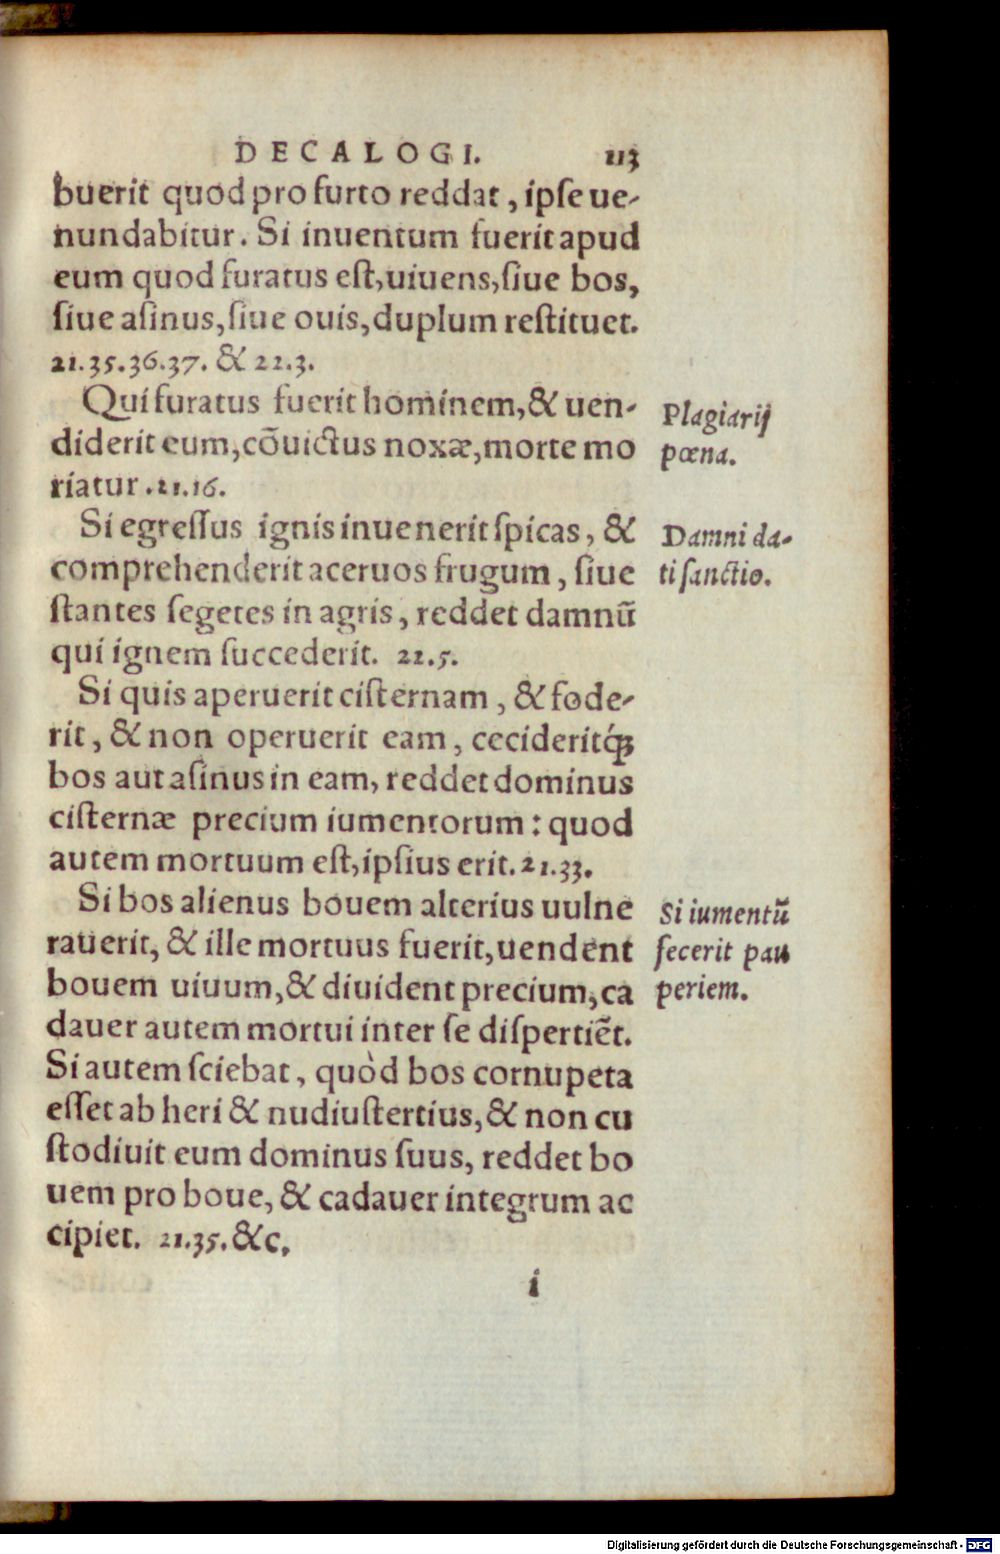 DECALOGI. 113
buerit quod pro furto reddat, ipse ue-
nundabitur. Si inuentum fuerit apud
eum quod furatus est, uiuens, siue bos,
siue asinus, siue ouis, duplum restituet.
21.35.36.37. & 22.3.
Qui furatus fuerit hominem, & uen-
diderit eum, cōuictus noxæ, morte mo
riatur. 21.16.
Plagiarij
pœna.
Si egressus ignis inuenerit spicas, &
comprehenderit aceruos frugum, siue
stantes segetes in agris, reddet damnū
qui ignem succederit. 22.5.
Damni da-
ti sanctio.
Si quis aperuerit cisternam, & fode-
rit, & non operuerit eam, cecideritq́ꝫ
bos aut asinus in eam, reddet dominus
cisternæ precium iumentorum: quod
autem mortuum est, ipsius erit. 21.33.
Si bos alienus bouem alterius uulne
rauerit, & ille mortuus fuerit, uendent
bouem uiuum, & diuident precium, ca
dauer autem mortui inter se dispertiēt.
Si autem sciebat, quòd bos cornupeta
esset ab heri & nudiustertius, & non cu
stodiuit eum dominus suus, reddet bo
uem pro boue, & cadauer integrum ac
cipiet. 21.35. &c.
Si iumentū
fecerit pau
periem.
i
Digitalisierung gefördert durch die Deutsche Forschungsgemeinschaft - DFG